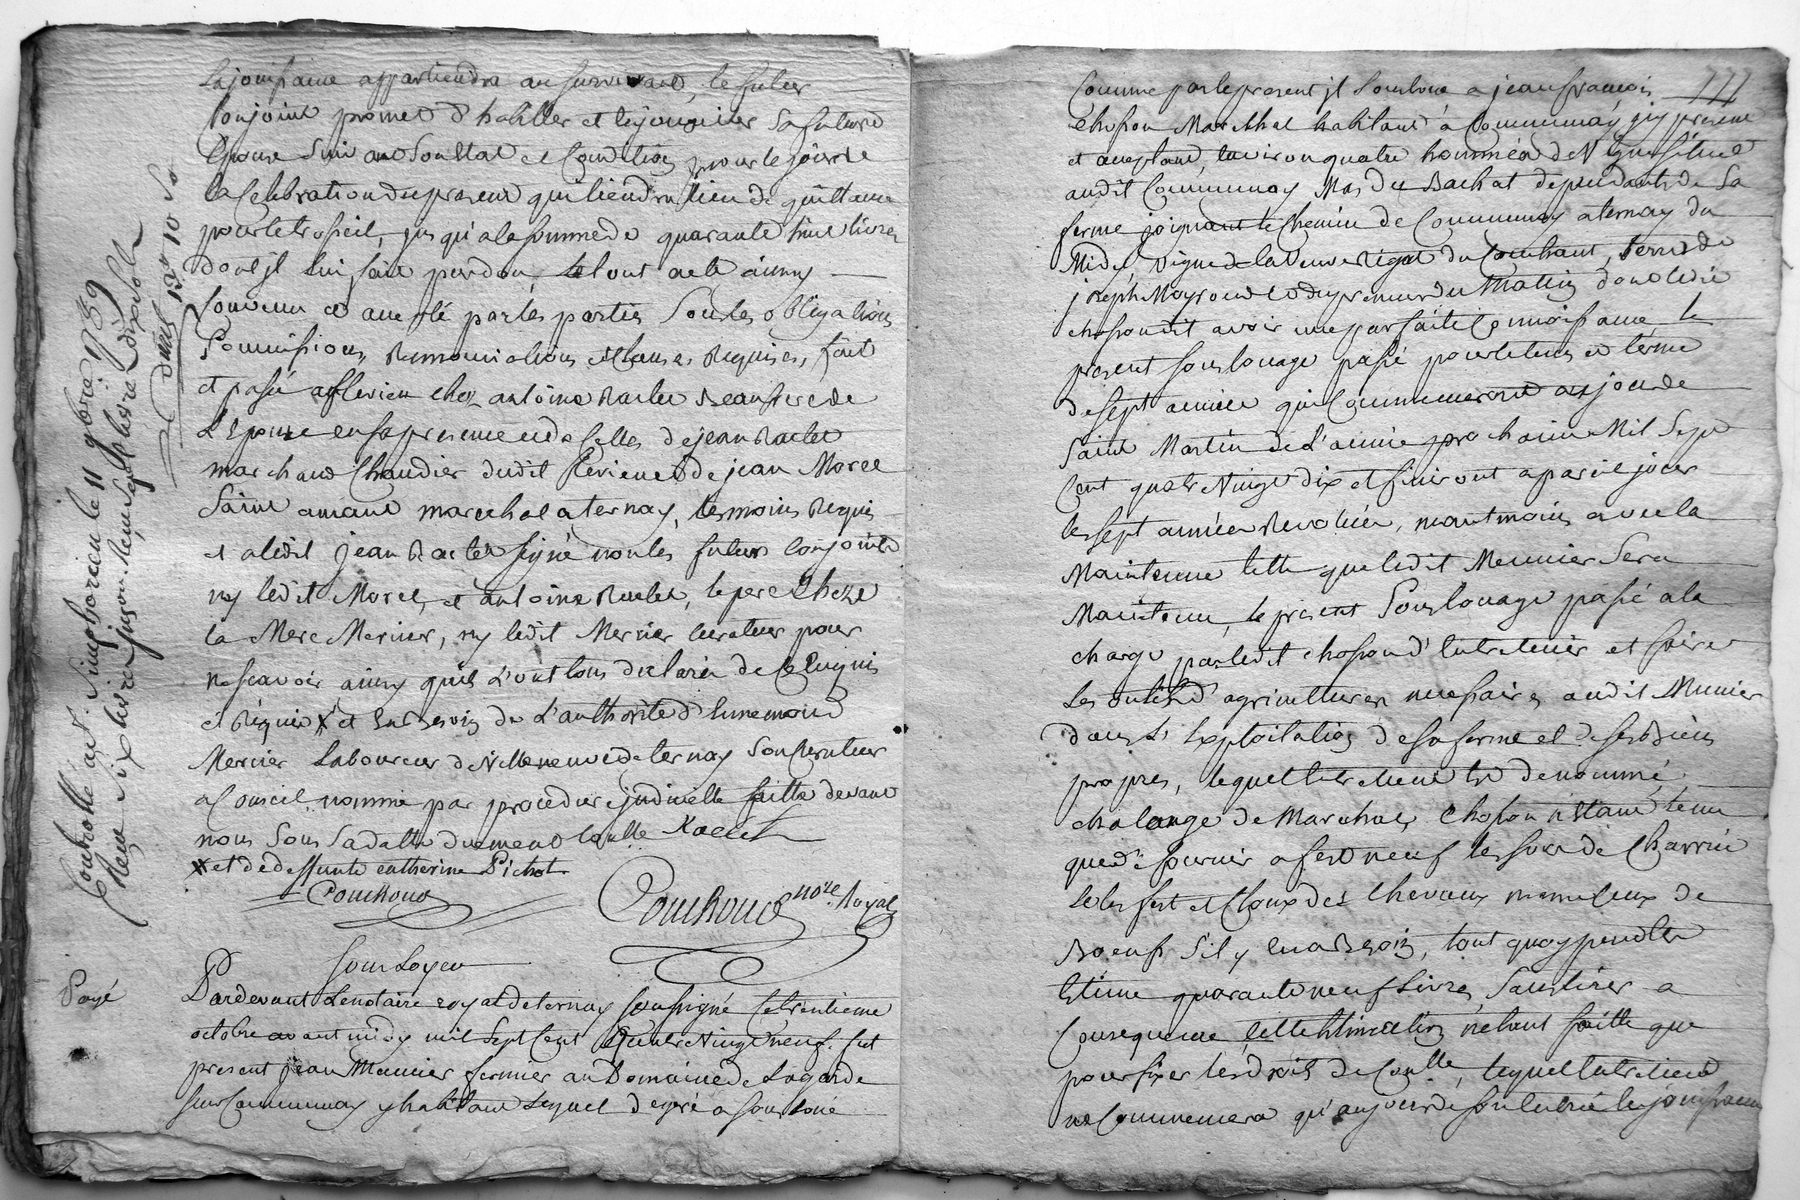 la jouissance appartiendra au survivant, le futur
conjoint promet d'habiller et sa future
Epouse suivant son Etat et Condition pour le jour de
la Celebration du present qui tiendra lieu de quittance
pour le trosseil, jusqu'a la somme de quarante huit livres
dont jl lui fait pardon, le tout acte ainsy
convenu et accepté par les parties sous les obligations
soumissions, Renonciations et Clauses Requises, fait
et passé a flevieu chez antoine Raclet Beaufrere de
L'Epouse en sa presence et de Celles de jean Raclet
marchand Chandier dudit flevieu et de jean Morel
Saint amant marechal a ternay, temoins Requis
et a ledit jean Raclet signé non les futurs Conjoints
ny ledit Morel, et antoine Raclet, le pere
la Mere Mercier, ny ledit Mercier Curateur pour
ne scavoir ainsy quils L'ont tous declaré de Ce Enquis
et Requis X et de L'authorité d'Ennemond
Mercier Laboureur de Villeneuve de ternay son Curateur
a Conseil nommé par procedure judicielle faitte devant
nous sous sa datte duement Conllé Raclet
X et de deffunte catherine Pichot
Couchoud
Couchoud no.re Royal
Controllé a St. Simphorien le 11 9bre 1789
Reçu six livres
Dural 13# 10 s
Payé
sous Loyer
Pardevant Le notaire royal de ternay soussigné Ce trentieme
octobre avant midy mil sept Cent Quatre Vingt neuf. fut
present jean Meunier fermier au Domaine de Lagarde
sur Communay y habitant Lequel de gré a sousloué
777
Comme par le present jl sousloue a jean françois
Chosson Marechal habitant a Communay jcy present
et acceptant, environ quatre hommées de Vigne situés
audit Communay Mas du Bachat dependants de sa
ferme joignant le Chemin de Communay a ternay du
Midy, vigne de la veuve Rigat du Couchant, terre de
joseph et du premier du Matin dont ledit
chosson dit avoir une parfaite Connoissance, le
present souslouage passé pour le tems et terme
de sept années qui Commenceront au jour de
Saint Martin de L'année prochaine Mil Sept
Cent quatre Vingt dix et finiront a pareil jour
les sept années Revolues, neantmoins avec la
Maintenue telle que ledit Meunier Sera
Maintenu, Le present Souslouage passé a la
charge par ledit chosson d'Entretenir et faire
les outils d'agriculture necessaires audit Munier
dans L'Exploitation de sa ferme et de ses Biens
propres, lequel Entretient est denommé
chalange de Marechal, chosson n'étant tenu
que de fournir a fert neuf les de Charrue
et les fert et Cloux des Chevaux même Ceux de
Boeufs s'il y en a Besoin, tout quoy peut être
Estimé quarante neuf livres, sans tirer a
Consequence Cette Estimation n'etant faitte que
pour fixer les droits de Conlle, lequel Entretient
ne Commencera qu'au jour de son Entrée En jouissance